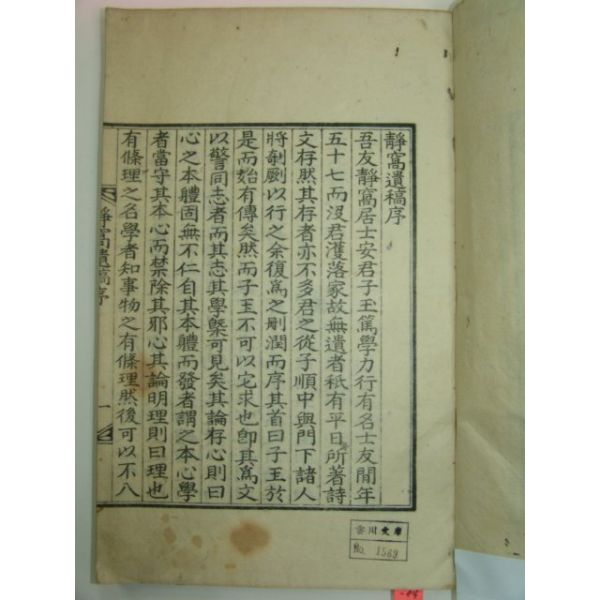 靜窩遺稿序
吾友靜窩居士安君子玉篤學力行有名士友間年
五十七而沒君濩落家故無遺者秖有平日所著詩
文存然其存者亦不多君之從子順中與門下諸人
將剞劂以行之余復爲之刪潤而序其首曰子玉於
是而始有傳矣然而子玉不可以它求也卽其爲文
以警同志者而其志其學槩可見矣其論存心則曰
心之本體固無不仁自其本體而發者謂之本心學
者當守其本心而禁除其邪心其論明理則曰理也
有條理之名學者知事物之有條理然後可以不八
靜窩遺稿序
一
雲川文庫
No. 1569